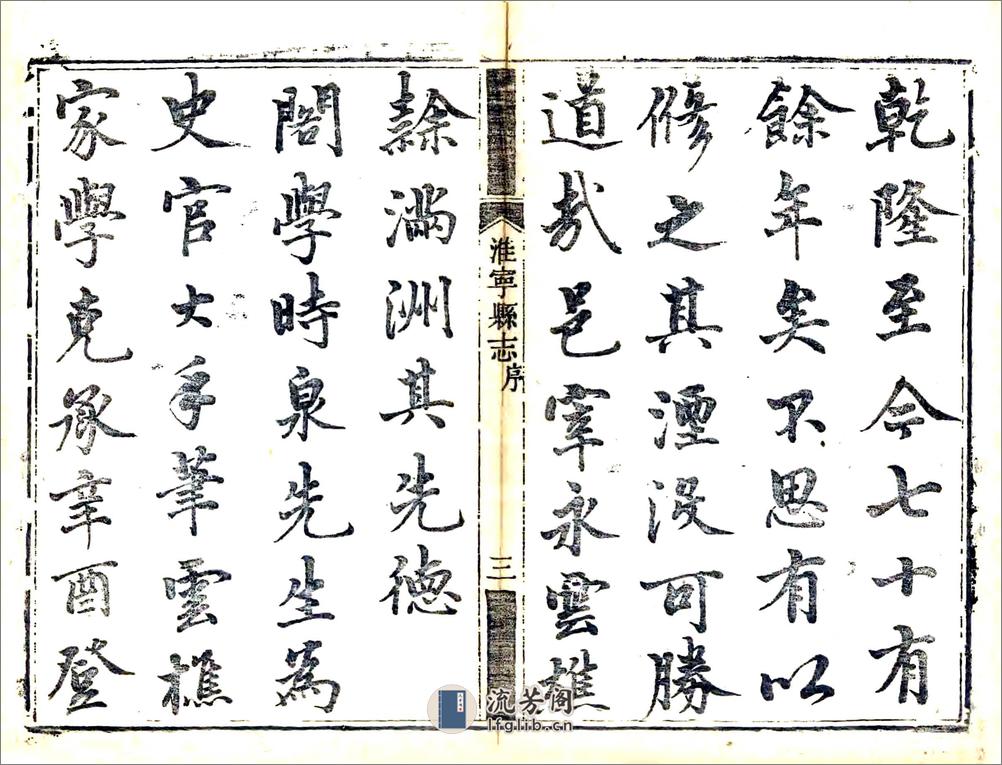 乾隆至今七十有
餘年矣不思有以
修之其湮沒可勝
道哉邑宰永雲樵
淮寧縣志
序
三
隸滿洲其先德
閣學時泉先生為
史官大手筆雲樵
家學克承辛酉登
流芳阁
lfglib.cn